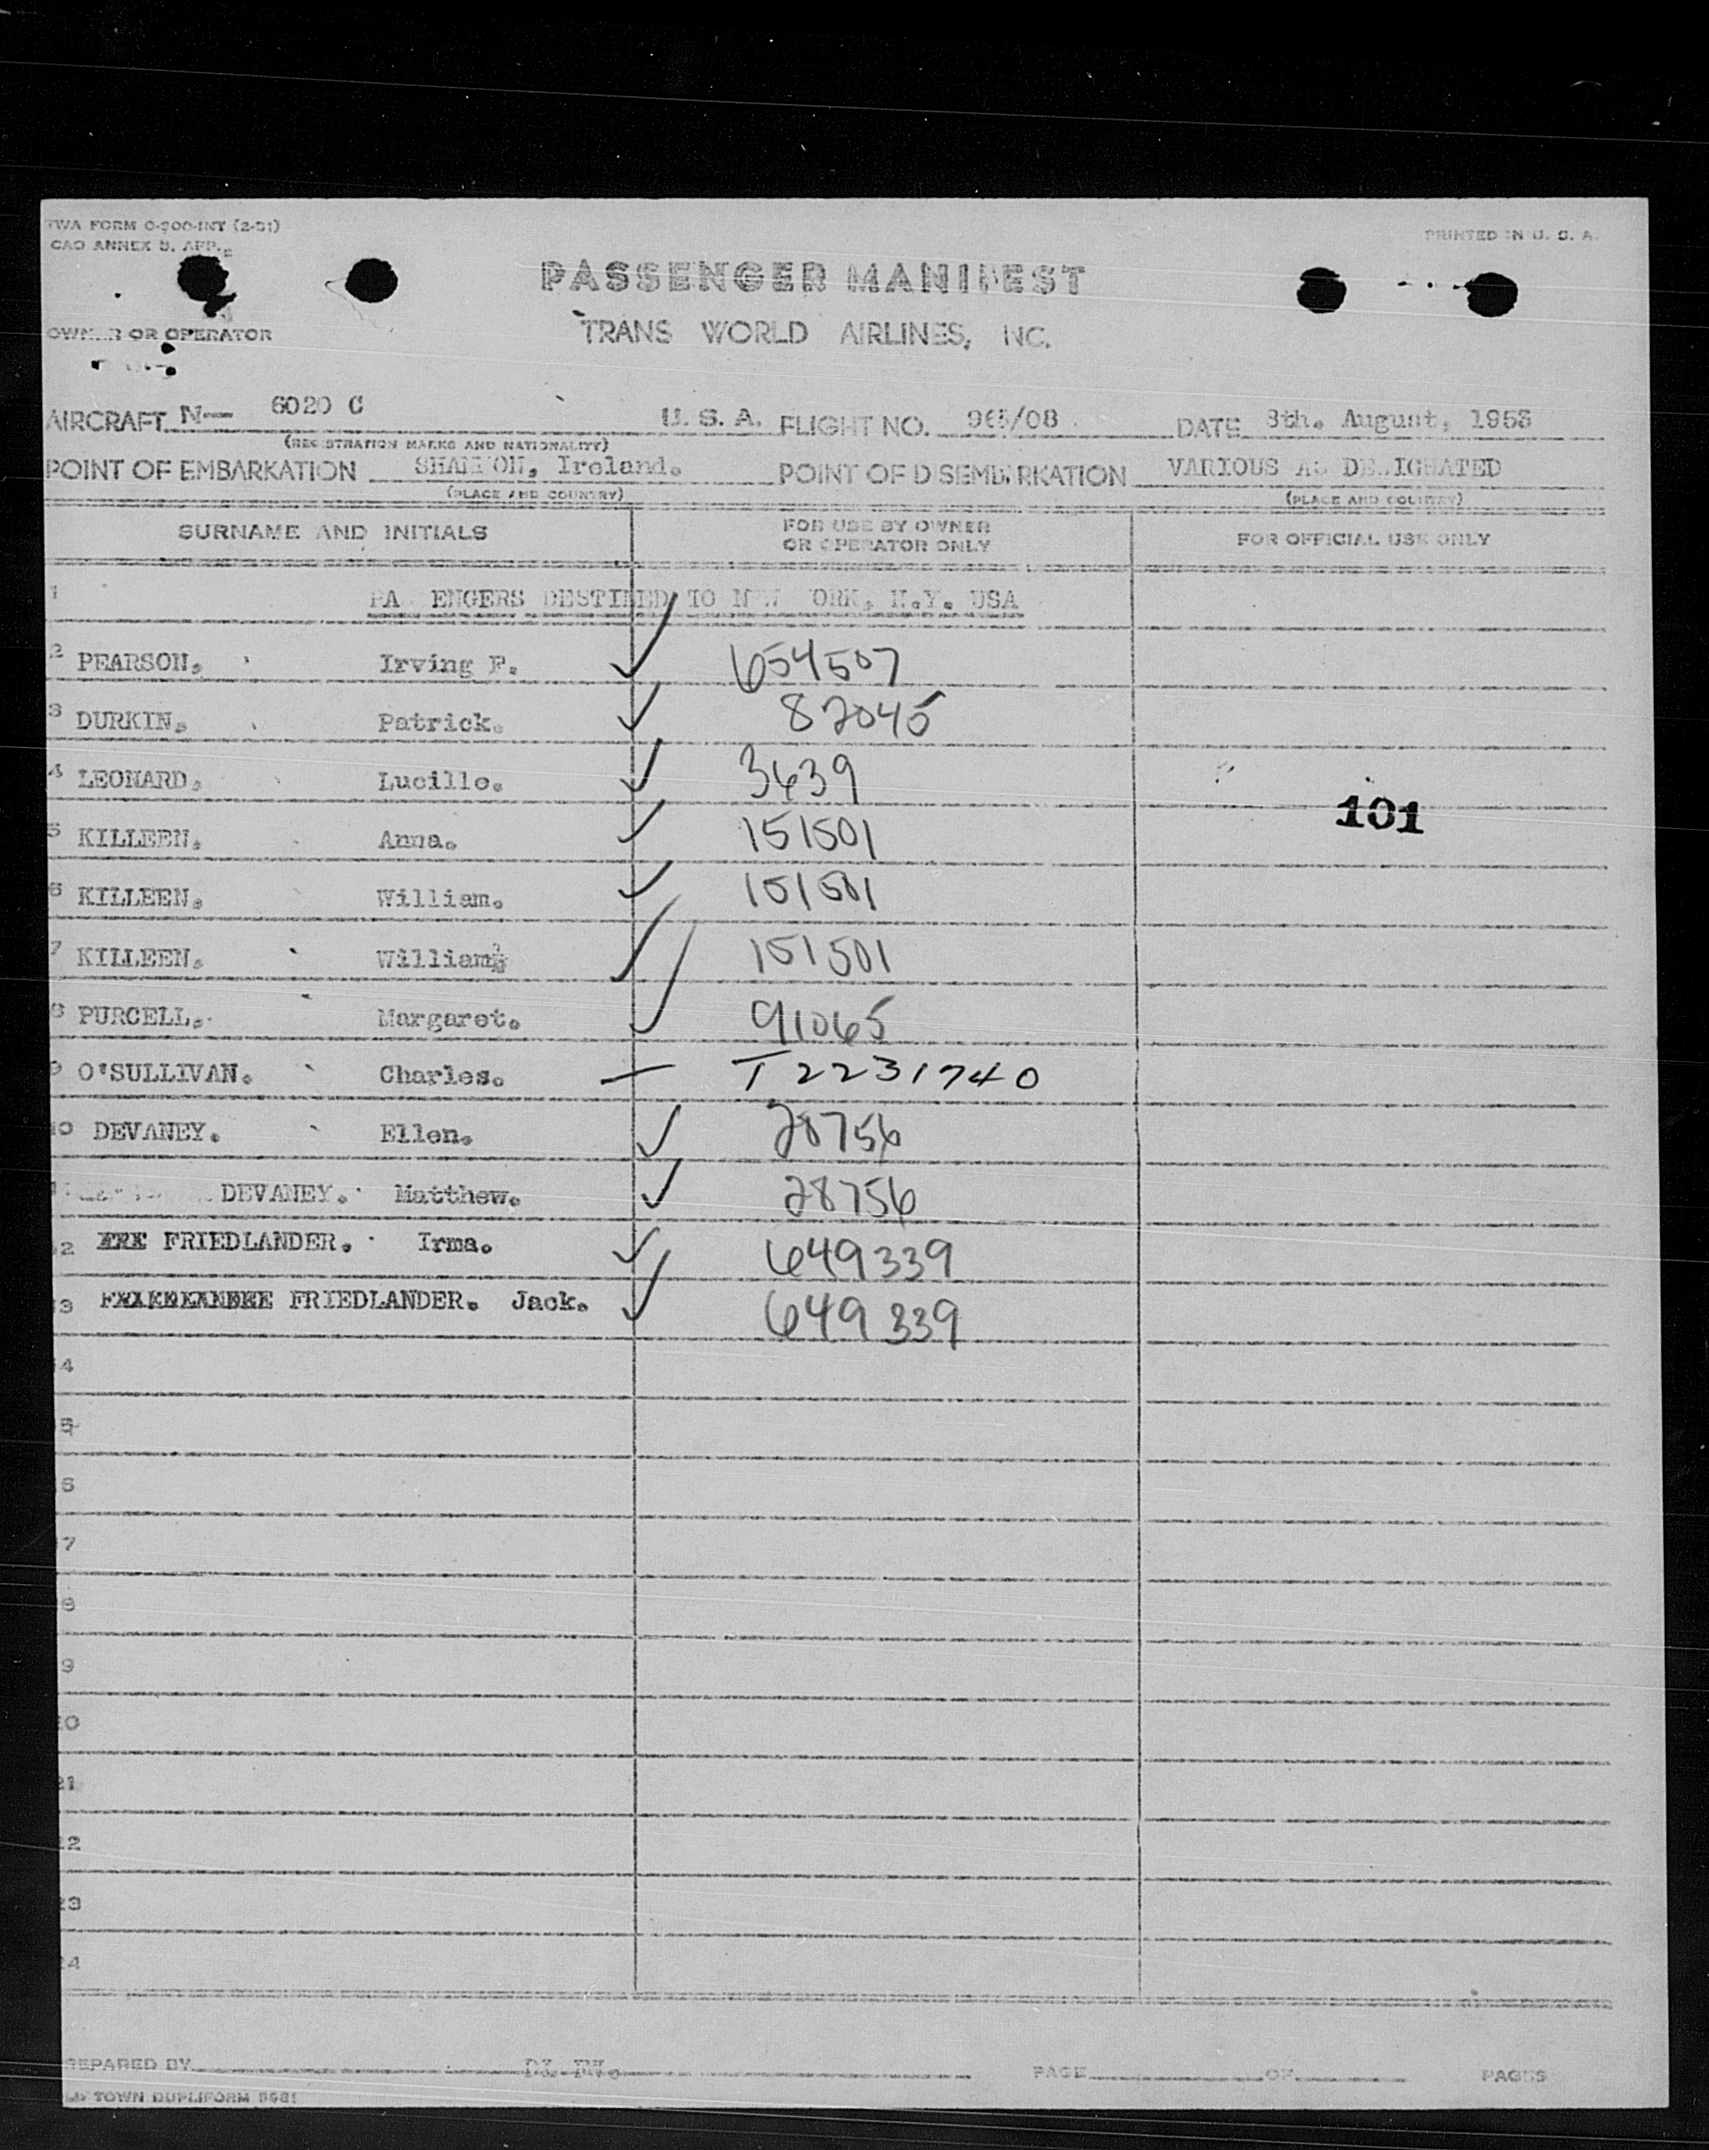 TWA FORM O-900-INT (2-51)
PRINTED IN U. S. A.
PASSENGER MANIFEST
OWNER OR OPERATOR
TRANS WORLD AIRLINES, INC.
AIRCRAFT N— 6020 C U. S. A. FLIGHT NO. 965/08 DATE 8th. August, 1953
(REGISTRATION MARKS AND NATIONALITY)
POINT OF EMBARKATION SHANNON, Ireland. POINT OF DISEMBARKATION VARIOUS AS DESIGNATED
(PLACE AND COUNTRY) (PLACE AND COUNTRY)
SURNAME AND INITIALS
FOR USE BY OWNER
OR OPERATOR ONLY
FOR OFFICIAL USE ONLY
1 PASSENGERS DESTINED TO NEW YORK, N.Y. USA
2 PEARSON, Irving F. ✓ 654507
3 DURKIN, Patrick. ✓ 82045
4 LEONARD, Lucille. ✓ 3639
101
5 KILLEEN, Anna. ✓ 151501
6 KILLEEN, William. ✓ 151501
7 KILLEEN, William ✓ 151501
8 PURCELL, Margaret. ✓ 91065
9 O'SULLIVAN. Charles. — T2231740
10 DEVANEY. Ellen. ✓ 28756
DEVANEY. Matthew. ✓ 28756
2 FRIEDLANDER. Irma. ✓ 649339
3 FRIEDLANDER. Jack. ✓ 649339
4
5
6
7
8
9
20
21
22
23
24
PREPARED BY PAGE OF PAGES
TOWN DUPLIFORM